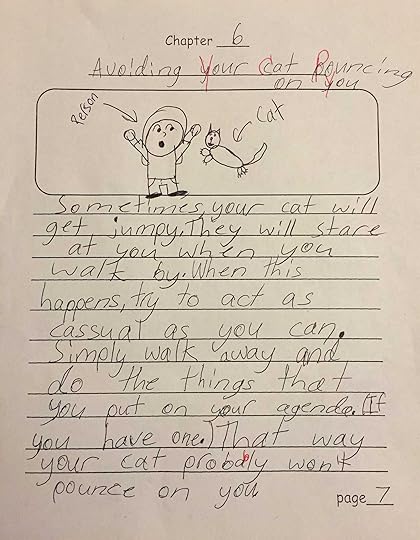 Chapter 6
Avoiding Your Cat Pouncing
on you
Person
Cat
Sometimes your cat will
get jumpy. They will stare
at you when you
walk by. When this
happens, try to act as
cassual as you can.
Simply walk away and
do the things that
you put on your agenda. (If
you have one.) That way
your cat probably won't
pounce on you
page 7